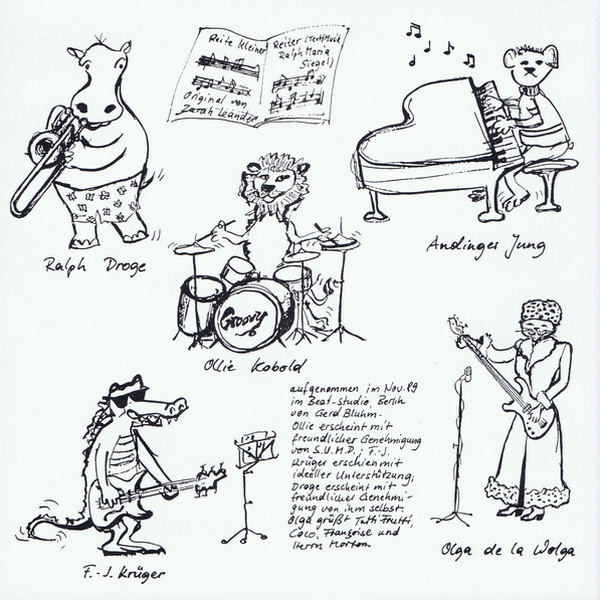 Reite kleiner
Reiter (Text/Musik
Ralph Maria
Siegel)
Original von
Zarah Leander
Ralph Droge
Andinger Jung
Groovy
Ollie Kobold
aufgenommen im Nov. 89
im Beat-Studio, Berlin
von Gerd Bluhm.
Ollie erscheint mit
freundlicher Genehmigung
von S.U.M.D.; F.-J.
Krüger erschien mit
ideeller Unterstützung;
Droge erscheint mit
freundlicher Genehmi-
gung von ihm selbst.
Olga grüßt Tutti Frutti,
Coco, Françoise und
Herrn Morton.
F.-J. Krüger
Olga de la Wolga